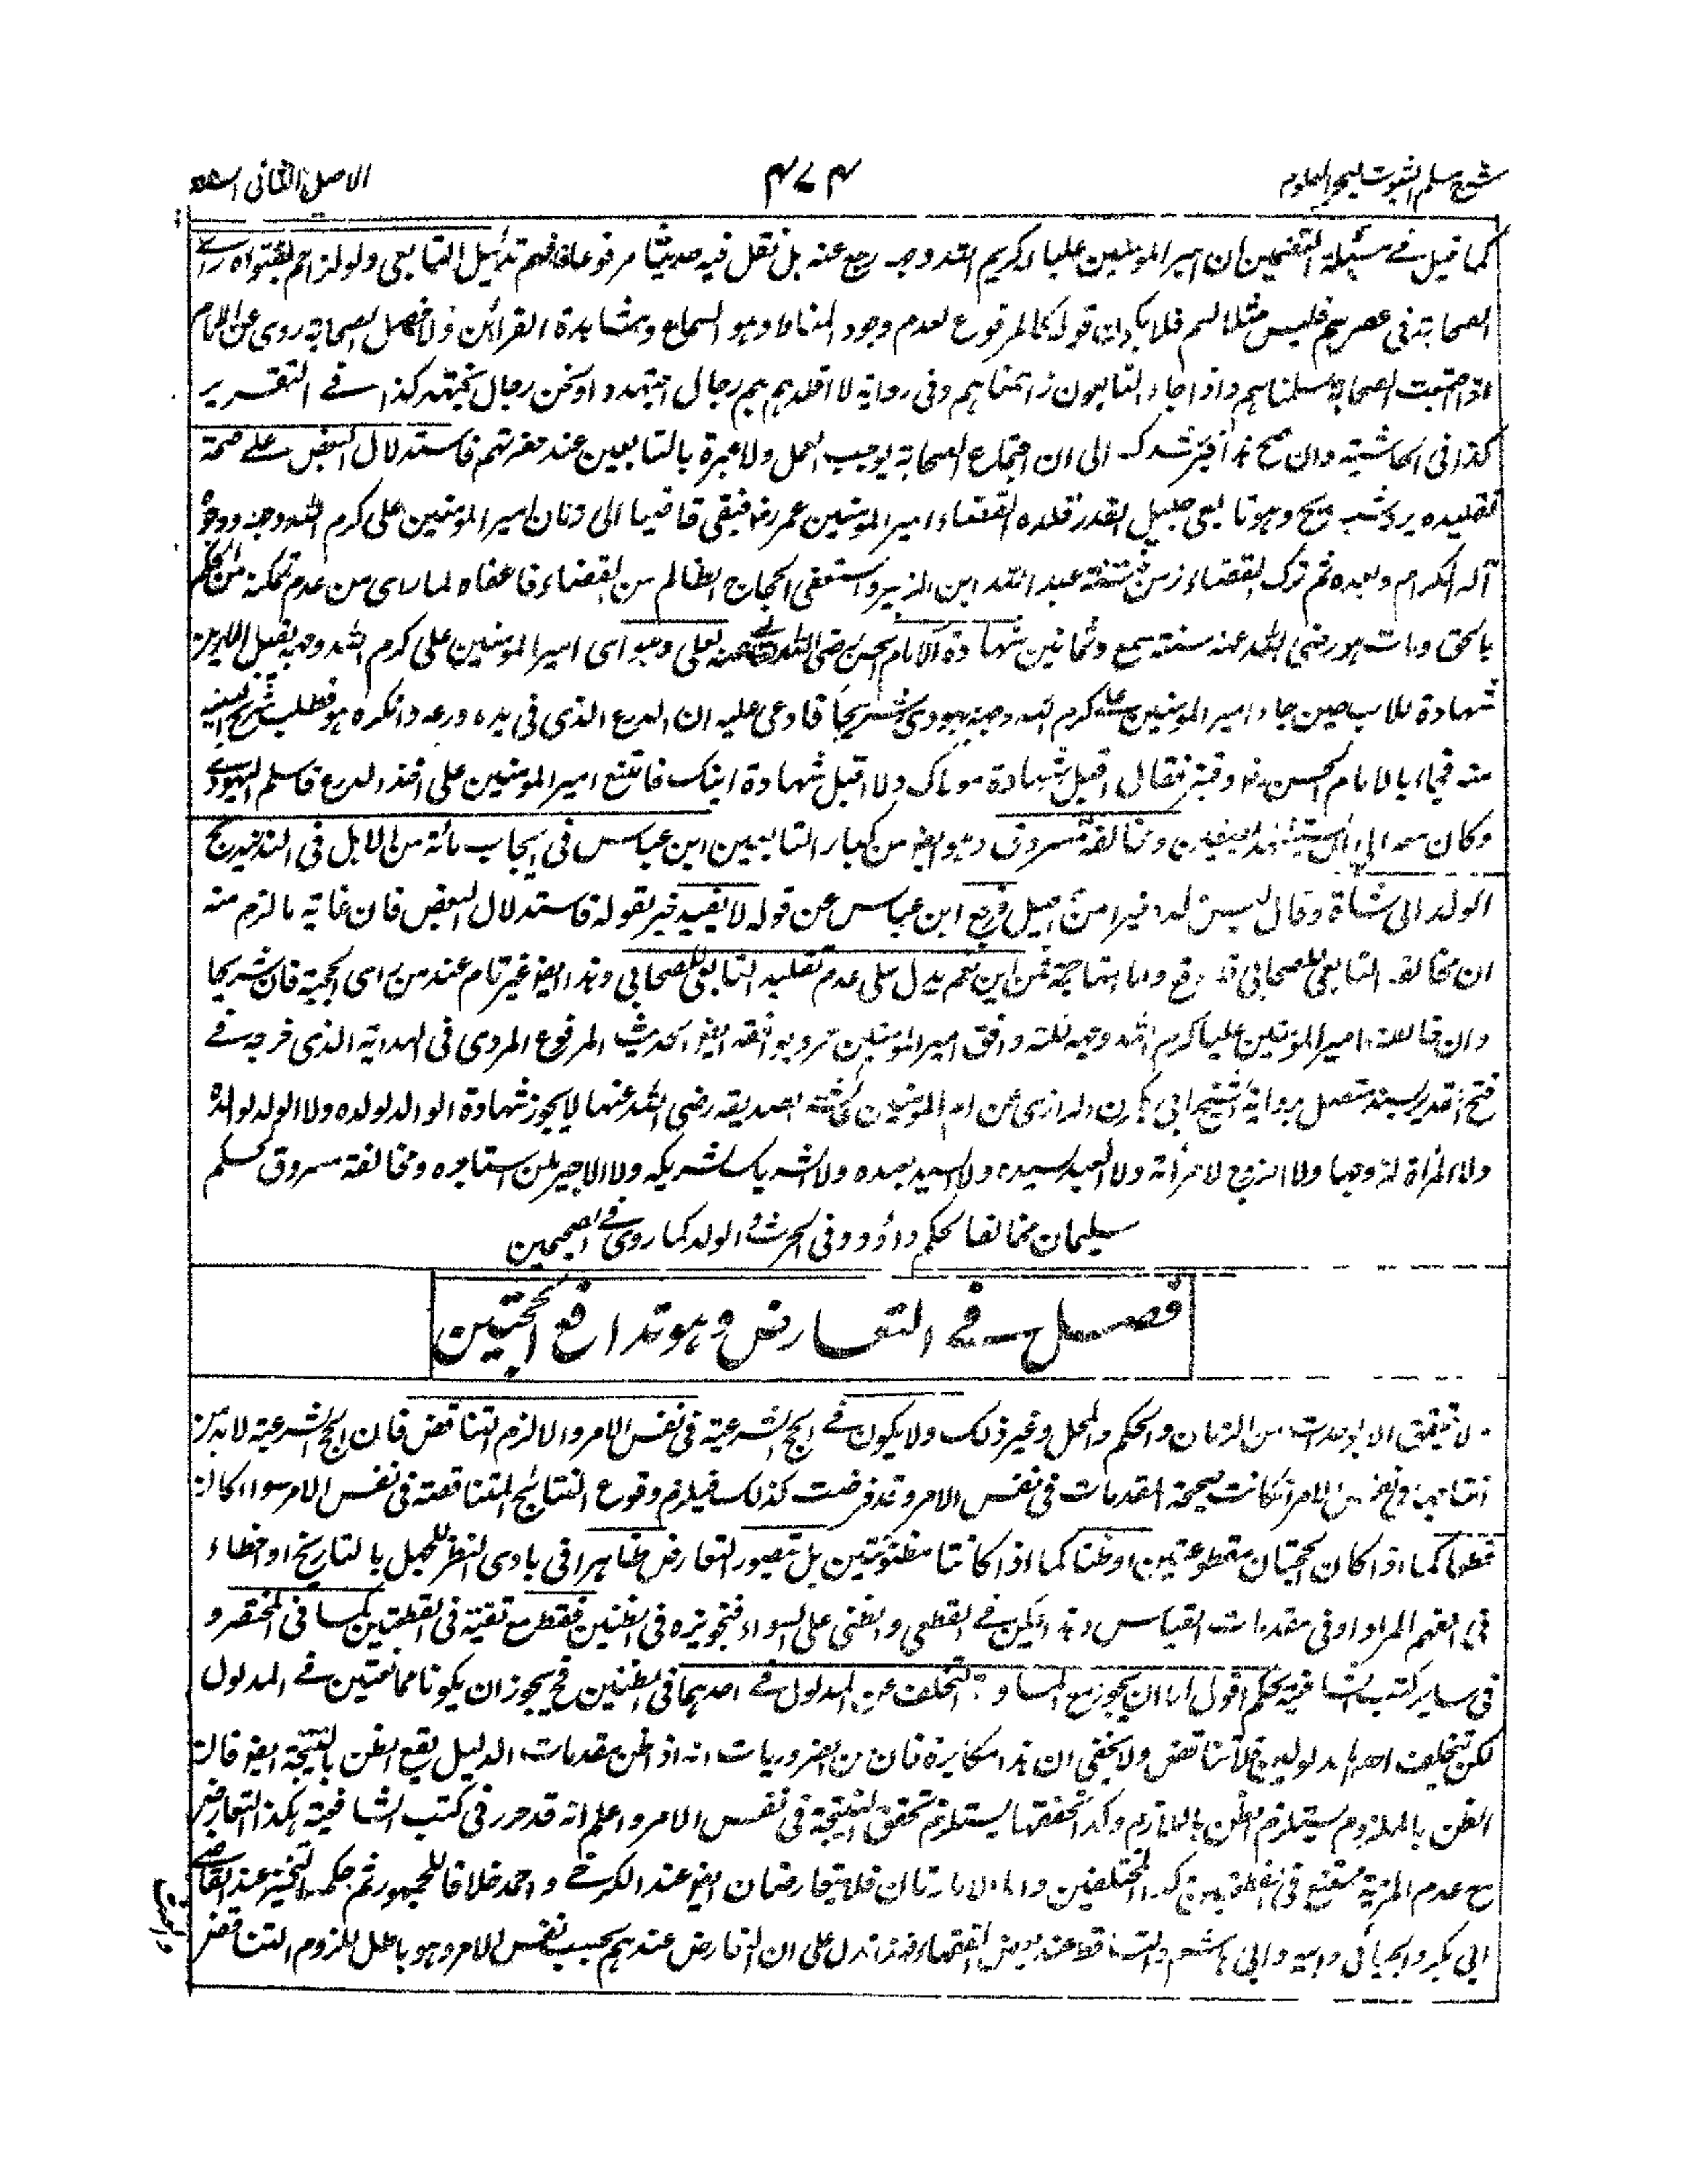 شرح مسلم الثبوت لبحر العلوم
۴۷۴
الاصل الثانی السنة
كما قيل فی مسئلة التضمين ان امير المؤمنين عليا كريم الله وجهه رجع عنه بل نقل فيه حديثا مرفوعا فافهم تذئيل التابعی ولو لزاحم بفتواه رای
الصحابة فی عصرهم فليس مثلا لهم فلا يكون قوله كالمرفوع لعدم وجود المناط وهو السماع ومشاهدة القرائن ولا فضل الصحابة روی عن الامام
اذا اجتمعت الصحابة سلمناهم واذا جاء التابعون زاحمناهم وفی رواية لا اقلدهم هم رجال اجتهدوا ونحن رجال نجتهد كذا فی التقرير
كذا فی الحاشية وان صح هذا فيرشدك الی ان اجماع الصحابة يوجب العمل ولا عبرة بالتابعين عند حضرتهم فاستدلال البعض علی صحة
تقليده برد شريح وهو تابعی جليل القدر قلده القضاء امير المؤمنين عمر رض فبقی قاضيا الی زمان امير المؤمنين علی كرم الله وجهه ووجوه
آله الكرام وبعده ثم ترك القضاء زمن فتنة عبد الله ابن الزبير واستعفی الحجاج الظالم من القضاء فاعفاه لما رای من عدم تمكنه من الحكم
بالحق ومات هو رضی الله عنه سنة سبع وثمانين شهادة الامام الحسن رضی الله عنه لعلی وهو ای امير المؤمنين علی كرم الله وجهه يقبل الابن
شهادة للاب حين جاء امير المؤمنين علی كرم الله وجهه بيهودی شريحا فادعی عليه ان الدرع الذی فی يده درعه وانكره هو فطلب شريح البينة
منه فجاء بالامام الحسن رض وقنبر فقال اقبل شهادة مولاك ولا اقبل شهادة ابنك فامتنع امير المؤمنين علی اخذ الدرع فاسلم اليهودی
وكان معه الی ان استشهد بصفين ومخالفة مسروق وهو ايضا من كبار التابعين ابن عباس فی ايجاب مائة من الابل فی النذر بذبح
الولد الی شاة وقال ليس ولده خيرا من اسمعيل فرجع ابن عباس عن قوله لا يفيد خبر لقوله فاستدلال البعض فان غاية ما لزم منه
ان مخالفة التابعی للصحابی قد وقع واما انها حجة فمن اين نعم يدل علی عدم تقليد التابعی للصحابی وهذا ايضا غير تام عند من رای الحجية فان شريحا
وان خالف امير المؤمنين عليا كرم الله وجهه لكنه وافق امير المؤمنين عمر ويوافقه ايضا الحديث المرفوع المروی فی الهداية الذی خرجه فی
فتح القدير بسند متصل برواية الشيخ ابی بكر الرازی عن ام المؤمنين عائشة الصديقة رضی الله عنها لا يجوز شهادة الوالد لولده ولا الولد لوالده
ولا المرأة لزوجها ولا الزوج لامرأته ولا العبد لسيده ولا السيد لعبده ولا الشريك لشريكه ولا الاجير لمن استاجره ومخالفة مسروق كحكم
سليمان مخالفا لحكم داؤد فی الحرث والولد كما روی فی الصحيحين
فصل فی التعارض وهو تدافع الحجتين
لا يتحقق الا بوحدات من الزمان والحكم والمحل وغير ذلك ولا يكون فی الحجج الشرعية فی نفس الامر والا لزم التناقض فان الحجج الشرعية لا بد من
نتايجها فی نفس الامر اذا كانت صحيحة المقدمات فی نفس الامر وقد فرضت كذلك فيلزم وقوع النتائج المتناقضة فی نفس الامر سواء كانت
قطعا كما اذا كان الحجتان مقطوعتين او ظنا كما اذا كانتا مظنونتين بل يتصور التعارض ظاهرا فی بادی النظر للجهل بالتاريخ او خطاء
فی الفهم المراد او فی مقدمات القياس وهذا يكون فی القطعی والظنی علی السواء فتجويزه فی الظنين فقط مع نفيه فی القطعيين كما فی المختصر و
فی ساير كتب الشافعية تحكم اقول اما ان يجوز مع المساواة التخلف عن المدلول فی احدهما فی الظنيين فح يجوز ان يكونا متمانعتين فی المدلول
لكن تخلف احد المدلولين فلا تناقض ولا يخفی ان هذا مكابرة فان من الضروريات انه اذا ظن مقدمات الدليل يقع الظن بالنتيجة ايضا فان
الظن بالملزوم يستلزم الظن باللازم وكذا تحققها يستلزم تحقق النتيجة فی نفس الامر واعلم انه قد حرر فی كتب الشافعية هكذا التعارض
مع عدم المزية ممتنع فی القطعيين كذا المختلفين واما الامارتان فلا يتعارضان ايضا عند الكرخی واحمد خلافا للجمهور ثم حكمه التخيير عند القاضی
ابی بكر والجبائی وابنه وابی هاشم والتساقط عند بعض الفقهاء فهذا يدل علی ان التعارض عندهم بحسب نفس الامر وهو باطل للزوم التناقض